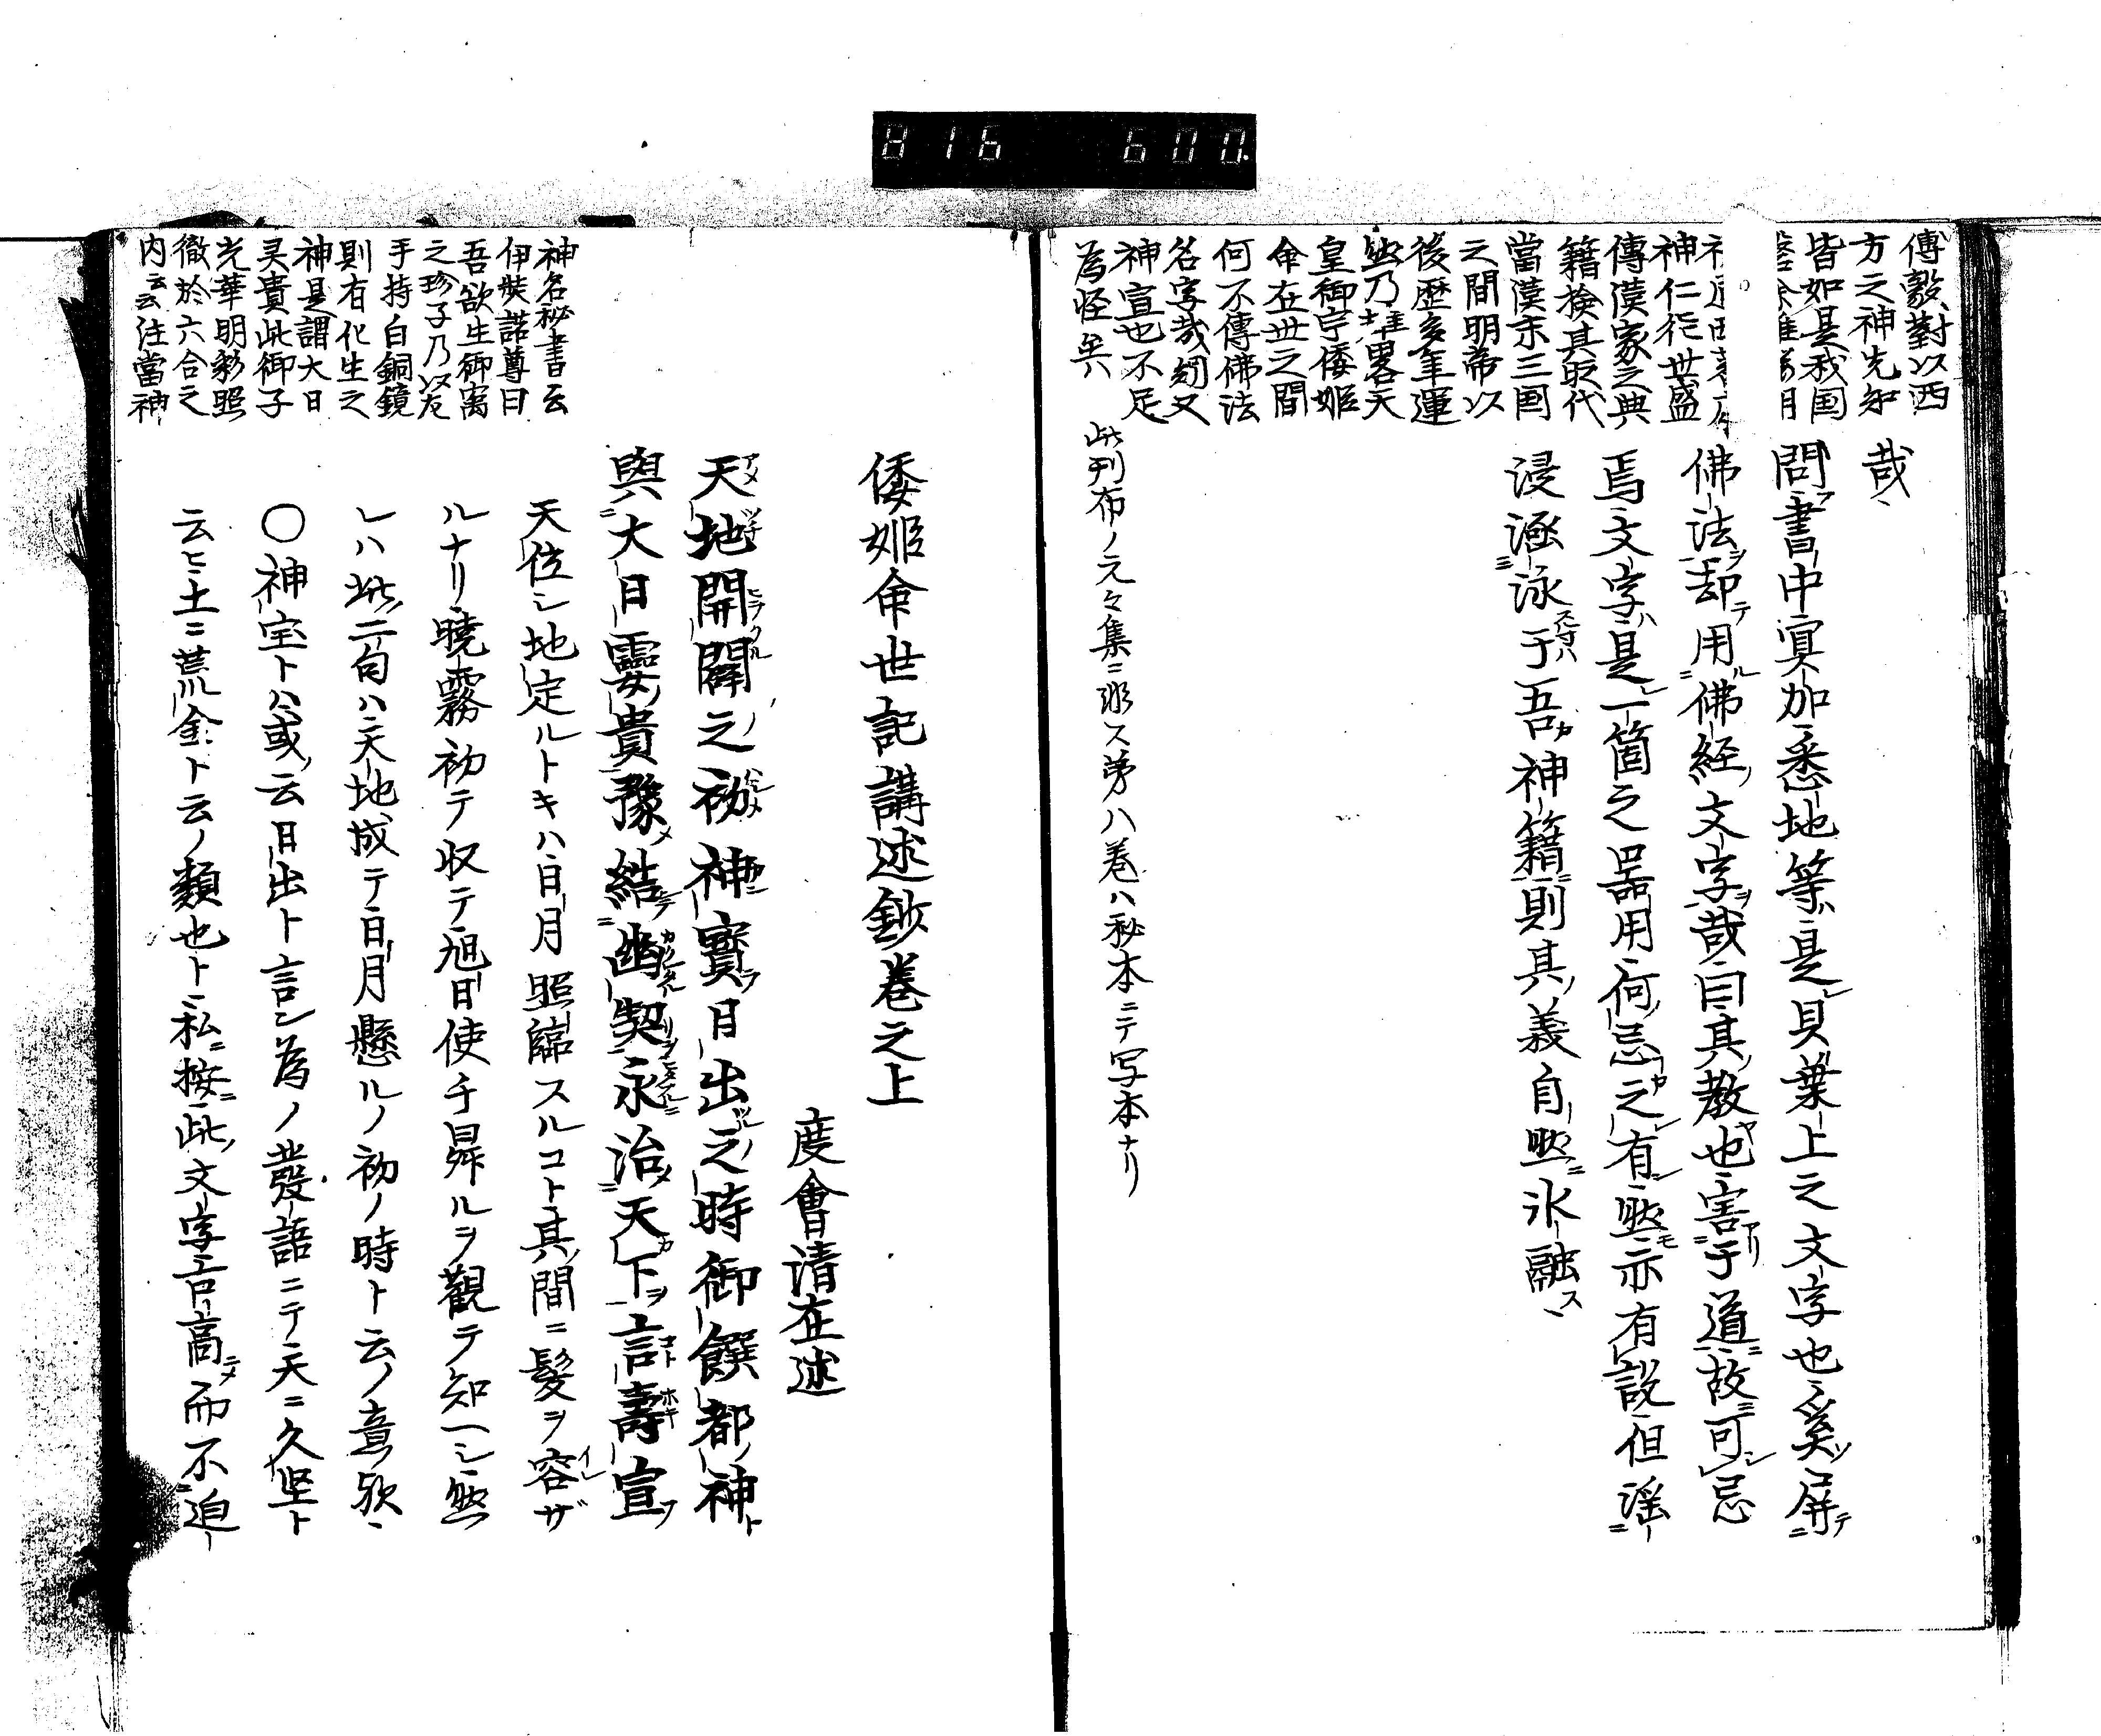 816 600.
傅毅對以西
方之神先知
皆如是我国
神仁徃世盛
傳漢家之典
籍検其取代
當漢末三国
之間明帝以
後歴多年運
然乃垂畧天
皇御宇倭姫
命在世之間
何不傳佛法
名字哉剱又
神宣也不足
為怪矣
哉
問書中冥加悉地等是貝葉上之文字也奚屏
佛法却用佛経文字哉曰其教也害于道故可忌
焉文字是一箇之器用何忌之有然亦有説但謡
浸涵泳于吾神籍則其義自然氷融ス
此刊布ノ元々集ニ形ス第八巻ハ秘本ニテ写本ナリ
神名秘書云
伊奘諾尊曰
吾欲生御寓
之珍子乃以左
手持白銅鏡
則有化生之
神是謂大日
灵貴此御子
光華明彩照
徹於六合之
内云云注當神
倭姫命世記講述鈔巻之上
度會清在述
天地開闢之初神寶日出之時御饌都神
與大日孁貴豫結幽契永治天下言壽宣
天位シ地定ルトキハ日月照臨スルコト其間ニ髪ヲ容ザ
ルナリ曉霧初テ収テ旭日使チ昇ルヲ觀テ知ヘシ然
レハ此二句ハ天地成テ日月懸ルノ初ノ時ト云ノ意歟
〇神宝トハ或云日出ト言シ為ノ發語ニテ天ニ久堅ト
云ヒ土ニ荒金ト云ノ類也ト私按此文字言高而不迫